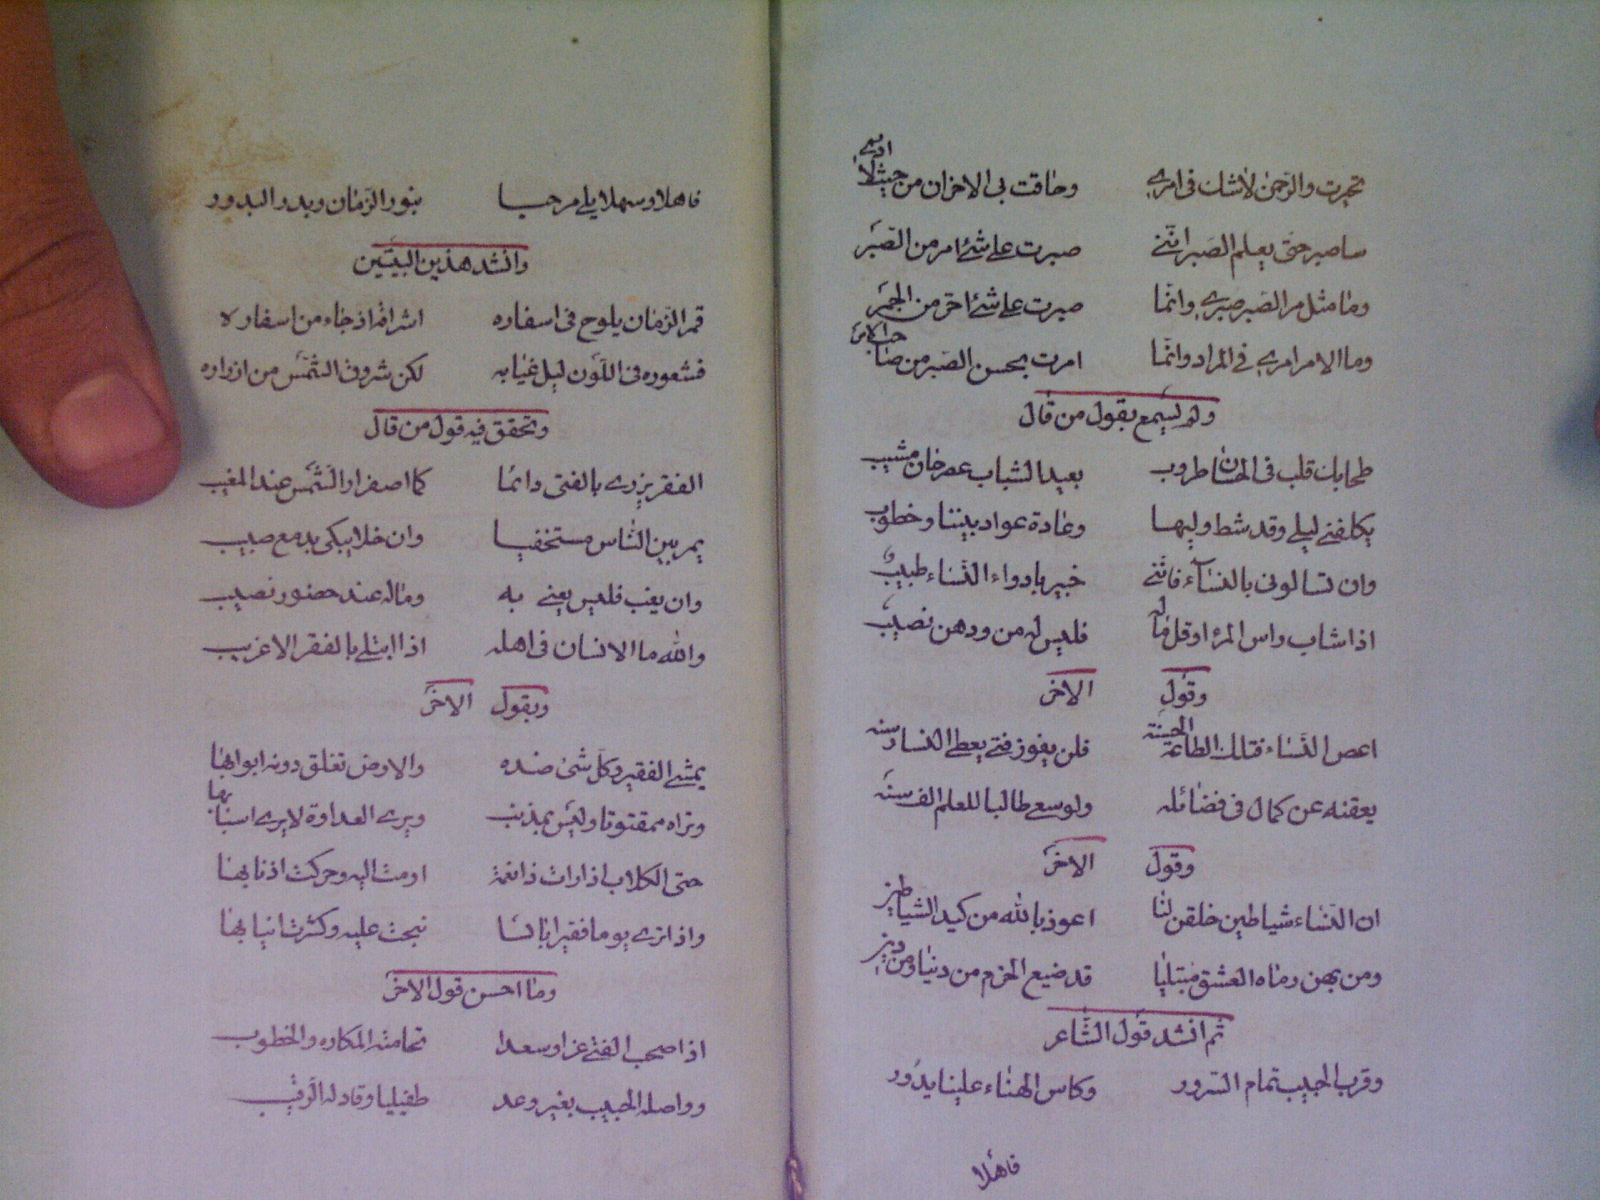 تحيرت والرحمن لا شك في امري وحاقت بي الاحزان من حيث لا ادري
ساصبر حتى يعلم الصبر انني صبرت على شئ امر من الصبر
وما مثل مر الصبر صبري وانما صبرت على شئ احر من الجمر
وما الامر امري في المراد وانما امرت بحسن الصبر من صاحب الامر
ولم يسمع بقول من قال
طحا بك قلب في الحسان طروب بعيد الشباب عصر خان مشيب
يكلفني ليلى وقد شط وليها وعادة عواد بيننا وخطوب
وان تسالوني بالنساء فانني خبير بادواء النساء طبيب
اذا شاب راس المرء او قل ماله فليس له من ودهن نصيب
وقول الاخر
اعص النساء فتلك الطاعة الحسنة فلن يفوز فتى يعطي النسا رسنه
يعقنه عن كمال في فضائله ولو سعى طالبا للعلم الف سنه
وقول الاخر
ان النساء شياطين خلقن لنا اعوذ بالله من كيد الشياطين
ومن بهن رماه العشق مبتليا قد ضيع الحزم من دنيا ومن دين
ثم انشد قول الشاعر
وقرب الحبيب تمام السرور وكاس الهناء علينا يدور
فاهلا
فاهلا وسهلا يلي مرحبا بنور الزمان وبدر البدور
وانشد هذين البيتين
قمر الزمان يلوح في اسفاره اشراقه اذ جاء من اسفاره
فشعوره في اللون ليل غيابه لكن شروق الشمس من ازراره
وتحقق فيه قول من قال
الفقر يزري بالفتى دائما كما اصفرار الشمس عند المغيب
يمر بين الناس مستخفيا وان خلا يبكي بدمع صبيب
وان يغب فليس يعنى به وماله عند حضور نصيب
والله ما الانسان في اهله اذا ابتلى بالفقر الا غريب
ويقول الاخر
يمشي الفقير وكل شئ ضده والارض تغلق دونه ابوابها
وتراه ممقوتا وليس بمذنب ويرى العداوة لا يرى اسبابها
حتى الكلاب اذا رات ذا نعمة اومت اليه وحركت اذنابها
واذا ترى يوما فقيرا بائسا نبحت عليه وكشرت انيابها
وما احسن قول الاخر
اذا صحب الفتى عز وسعدا تحامته المكاره والخطوب
وواصله الحبيب بغير وعد طفيليا وقاد له الرقيب